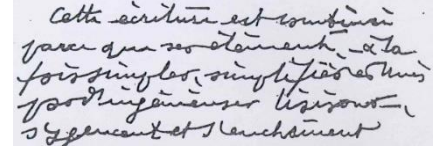 Cette écriture est combinée
parce que ses éléments, à la
fois simples, simplifiés et unis
par d'ingénieuses liaisons,
s'agencent et s'enchaînent